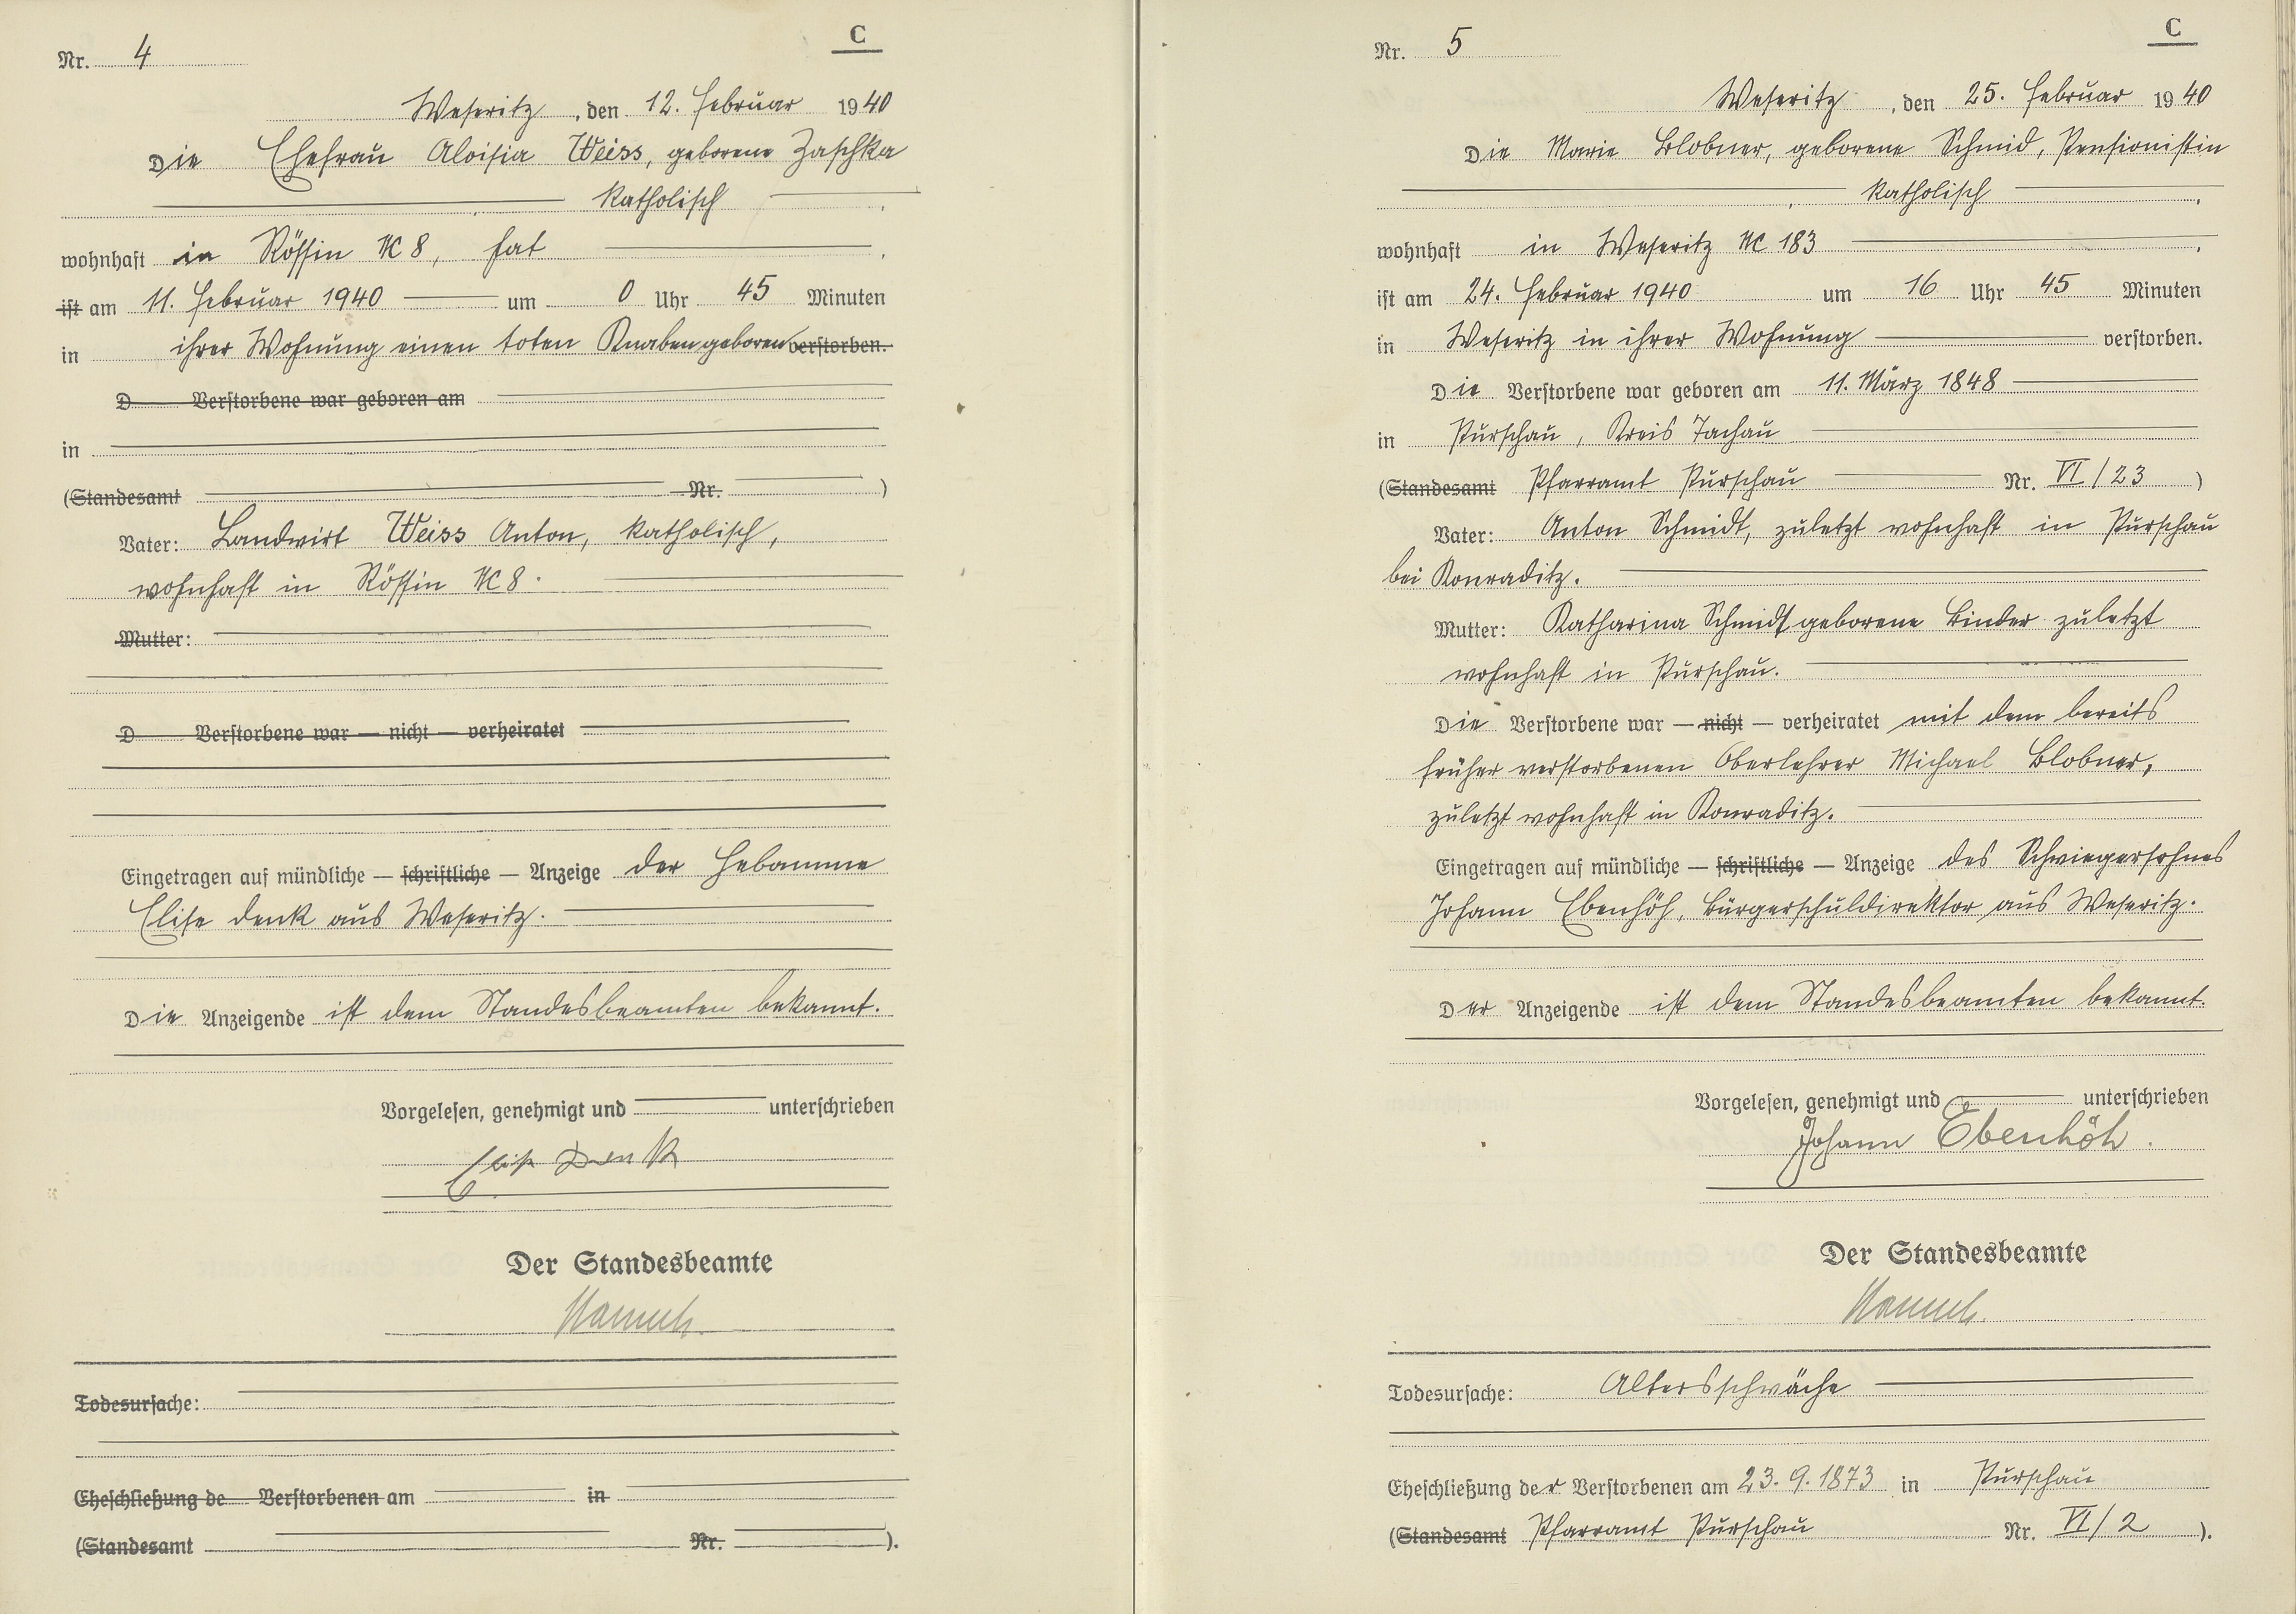 C
Nr. 4
Weseritz, den 12. Februar 1940
Die Ehefrau Aloisia Weiss, geborene Zaschka
katholisch
wohnhaft in Rössin № 8, hat
ist am 11. Februar 1940 um 0 Uhr 45 Minuten
in ihrer Wohnung einen toten Knaben geboren verstorben.
D Verstorbene war geboren am
in
(Standesamt Nr. )
Vater: Landwirt Weiss Anton, katholisch,
wohnhaft in Rössin № 8.
Mutter:
D Verstorbene war — nicht — verheiratet
Eingetragen auf mündliche — schriftliche — Anzeige der Hebamme
Elise Denk aus Weseritz.
Die Anzeigende ist dem Standesbeamten bekannt.
Vorgelesen, genehmigt und unterschrieben
Elise Denk
Der Standesbeamte
Todesursache:
Eheschließung de Verstorbenen am in
(Standesamt Nr. ).
C
Nr. 5
Weseritz, den 25. Februar 1940
Die Marie Blobner, geborene Schmid, Pensionistin
, katholisch ,
wohnhaft in Weseritz № 183 ,
ist am 24. Februar 1940 um 16 Uhr 45 Minuten
in Weseritz in ihrer Wohnung verstorben.
Die Verstorbene war geboren am 11. März 1848
in Purschau, Kreis Tachau
(Standesamt Pfarramt Purschau Nr. VI/23 )
Vater: Anton Schmidt, zuletzt wohnhaft in Purschau
bei Konraditz.
Mutter: Katharina Schmidt geborene Binder zuletzt
wohnhaft in Purschau.
Die Verstorbene war — nicht — verheiratet mit dem bereits
früher verstorbenen Oberlehrer Michael Blobner,
zuletzt wohnhaft in Konraditz.
Eingetragen auf mündliche — schriftliche — Anzeige des Schwiegersohnes
Johann Ebenhöh, Bürgerschuldirektor aus Weseritz.
Der Anzeigende ist dem Standesbeamten bekannt.
Vorgelesen, genehmigt und unterschrieben
Johann Ebenhöh.
Der Standesbeamte
Todesursache: Altersschwäche
Eheschließung der Verstorbenen am 23. 9. 1873 in Purschau
(Standesamt Pfarramt Purschau Nr. VI/2 ).